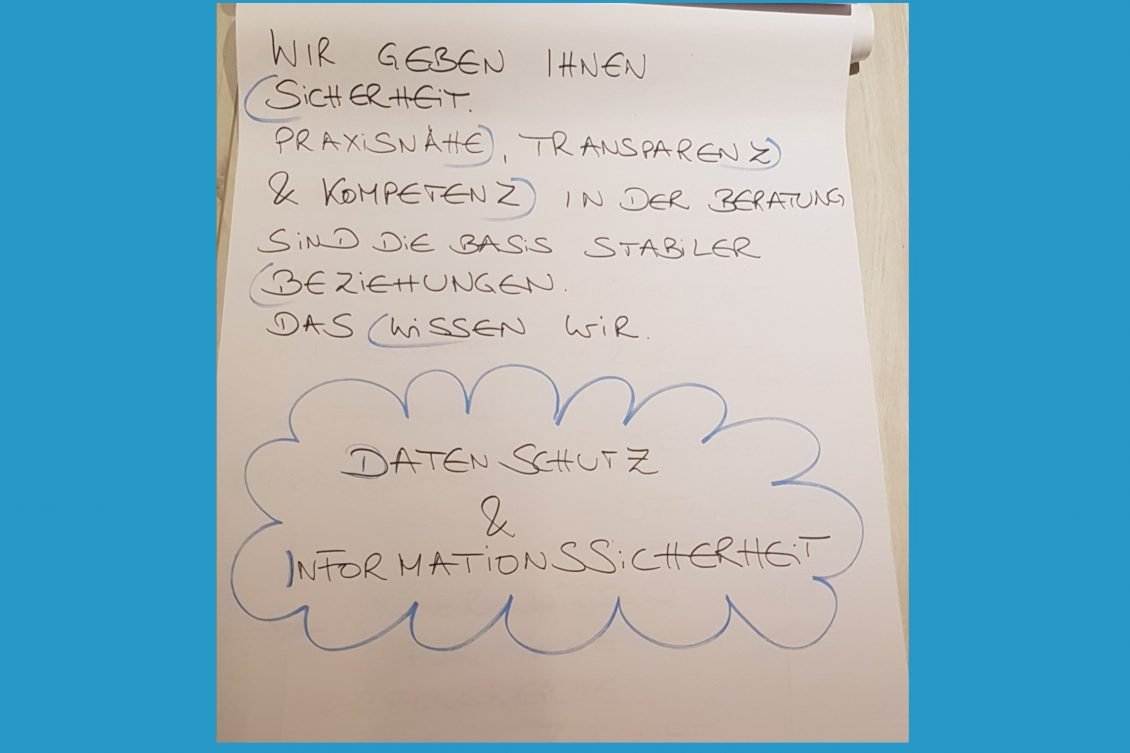 WIR GEBEN IHNEN
SiCHERHEiT.
PRAXiSNÄHE, TRANSPARENZ
& KOMPETENZ IN DER BERATUNG
SiND DiE BASiS STABiLER
BEZiEHUNGEN.
DAS WiSSEN WiR.
DATENSCHUTZ
&
INFORMATIONSSiCHERHEiT